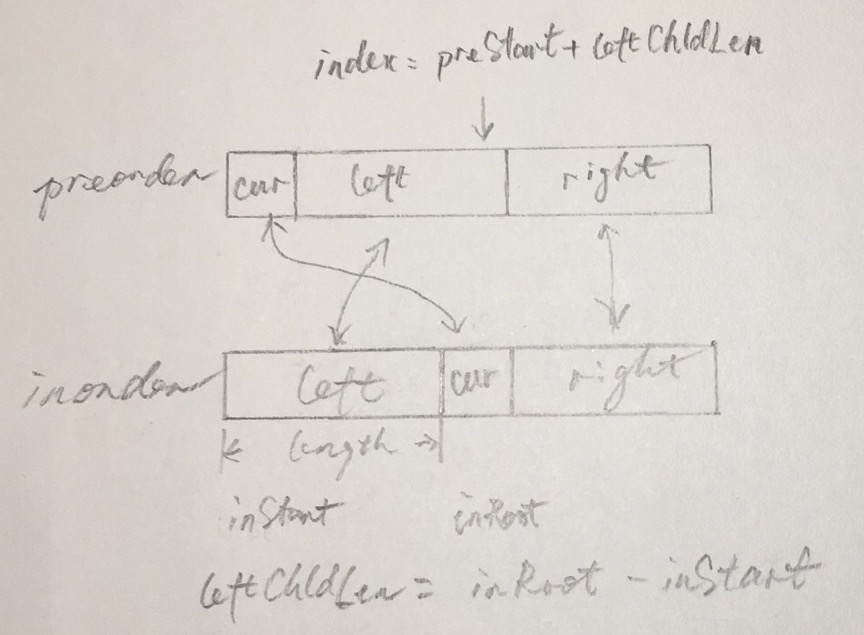 index = preStart + leftChldLen
preorder cur left right
inorder left cur right
length
inStart inRoot
leftChldLen = inRoot - inStart